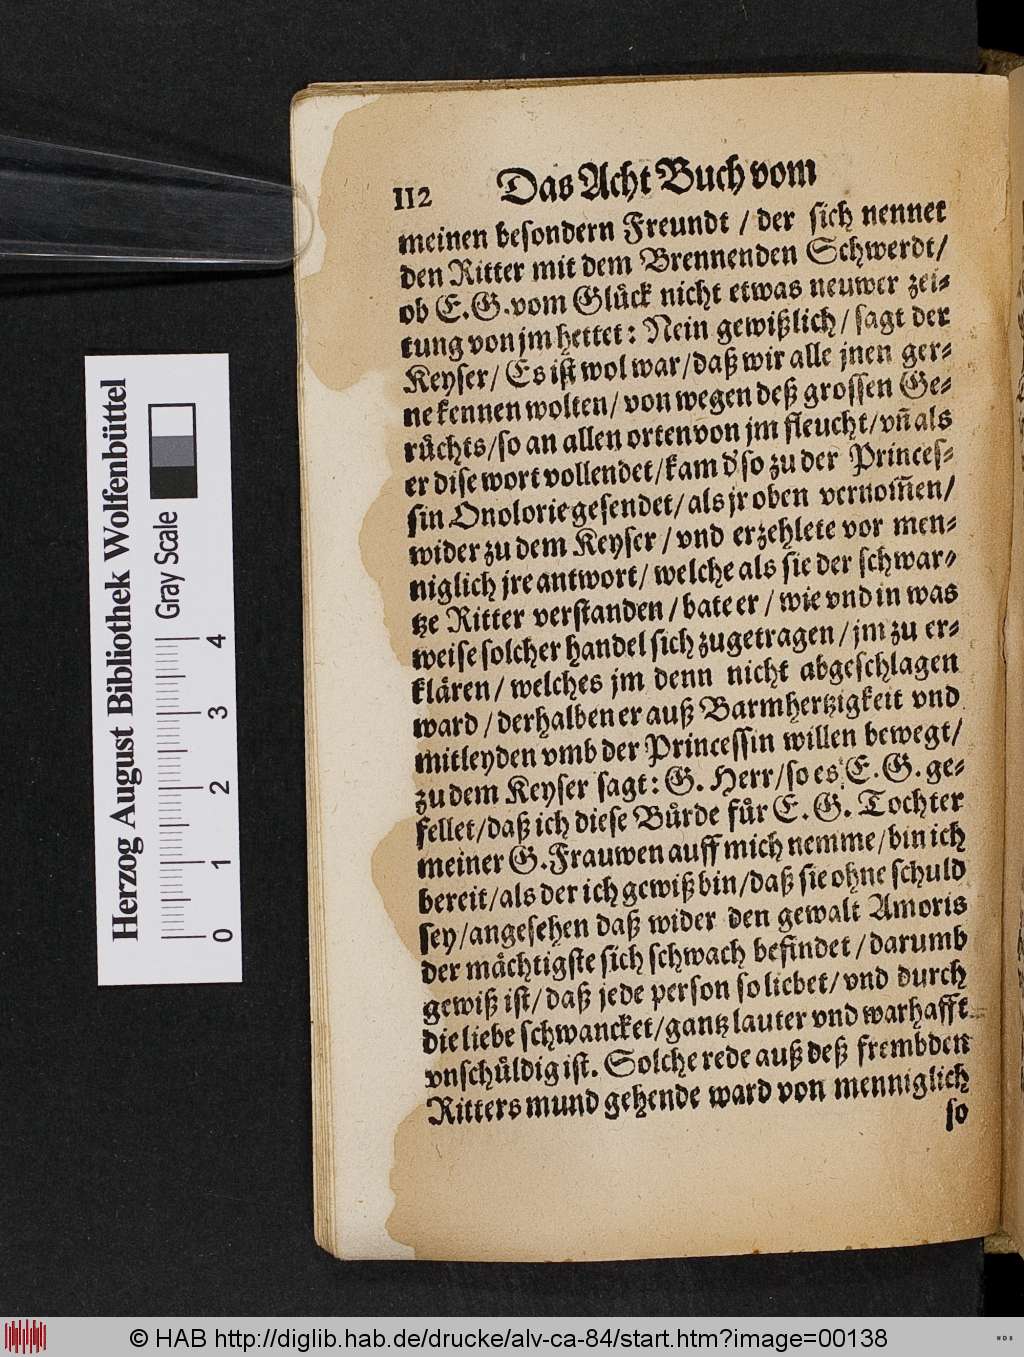 112 Das Acht Buch vom
meinen besondern Freundt / der sich nennet
den Ritter mit dem Brennenden Schwerdt/
ob E. G. vom Glůck nicht etwas neuwer zei-
tung von jm hettet: Nein gewißlich / sagt der
Keyser / Es ist wol war / daß wir alle jnen ger-
ne kennen wolten / von wegen deß grossen Ge-
růchts / so an allen orten von jm fleucht / vñ als
er dise wort vollendet / kam d' so zu der Princes-
sin Onolorie gesendet / als jr oben vernom̄en /
wider zu dem Keyser / vnd erzehlete vor men-
niglich jre antwort / welche als sie der schwar-
tze Ritter verstanden / bate er / wie vnd in was
weise solcher handel sich zugetragen / jm zu er-
klären / welches jm denn nicht abgeschlagen
ward / derhalben er auß Barmhertzigkeit vnd
mitleyden vmb der Princessin willen bewegt /
zu dem Keyser sagt: G. Herr / so es E. G. ge-
fellet / daß ich diese Bůrde fůr E. G. Tochter
meiner G. Frauwen auff mich nemme / bin ich
bereit / als der ich gewiß bin / daß sie ohne schuld
sey / angesehen daß wider den gewalt Amoris
der mächtigste sich schwach befindet / darumb
gewiß ist / daß jede person so liebet / vnd durch
die liebe schwancket / gantz lauter vnd warhafft
vnschůldig ist. Solche rede auß deß frembden
Ritters mund gehende ward von menniglich
so
Herzog August Bibliothek Wolfenbüttel
Gray Scale
0 1 2 3 4
© HAB http://diglib.hab.de/drucke/alv-ca-84/start.htm?image=00138